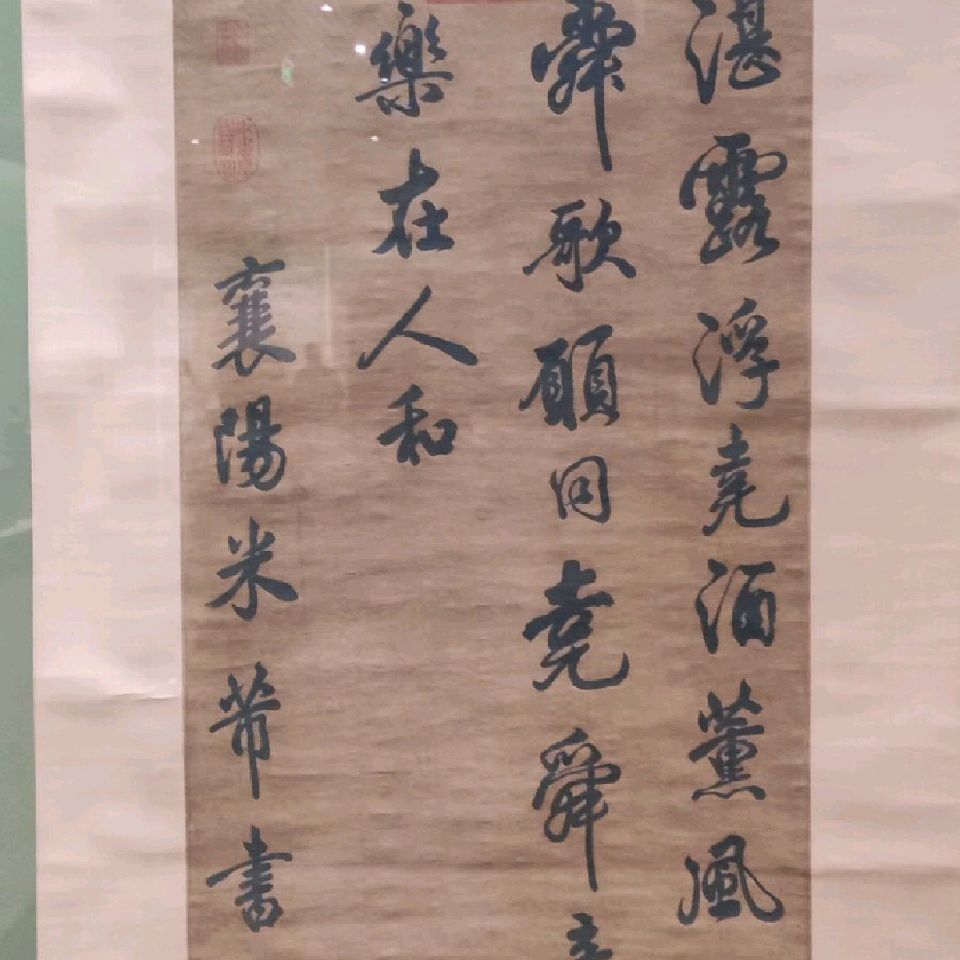 湛露浮堯酒薰風
舜歌願同堯舜意
樂在人和
襄陽米芾書